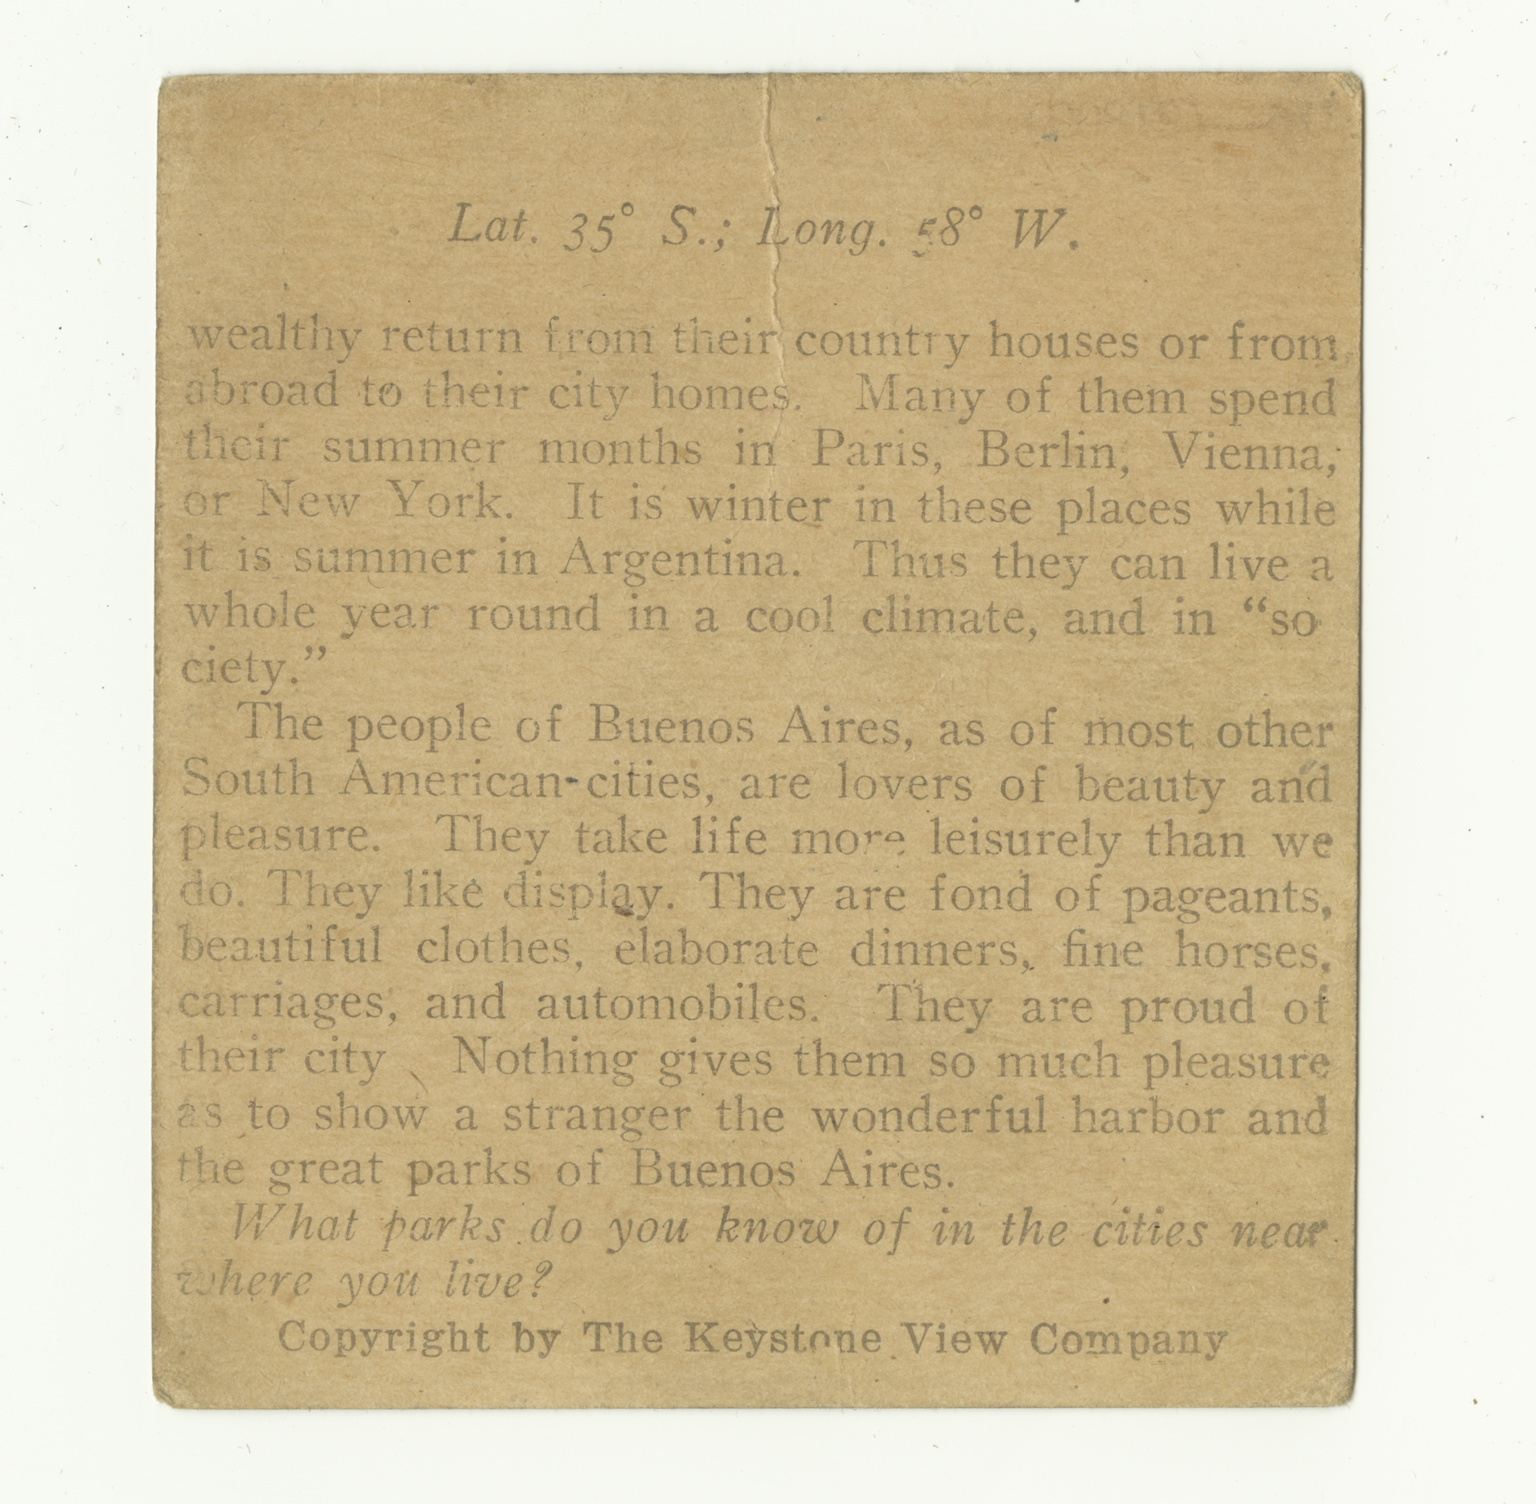 Lat. 35° S.; Long. 58° W.
wealthy return from their country houses or from
abroad to their city homes. Many of them spend
their summer months in Paris, Berlin, Vienna,
or New York. It is winter in these places while
it is summer in Argentina. Thus they can live a
whole year round in a cool climate, and in “so
ciety.”
The people of Buenos Aires, as of most other
South American cities, are lovers of beauty and
pleasure. They take life more leisurely than we
do. They like display. They are fond of pageants,
beautiful clothes, elaborate dinners, fine horses,
carriages, and automobiles. They are proud of
their city Nothing gives them so much pleasure
as to show a stranger the wonderful harbor and
the great parks of Buenos Aires.
What parks do you know of in the cities near
where you live?
Copyright by The Keystone View Company